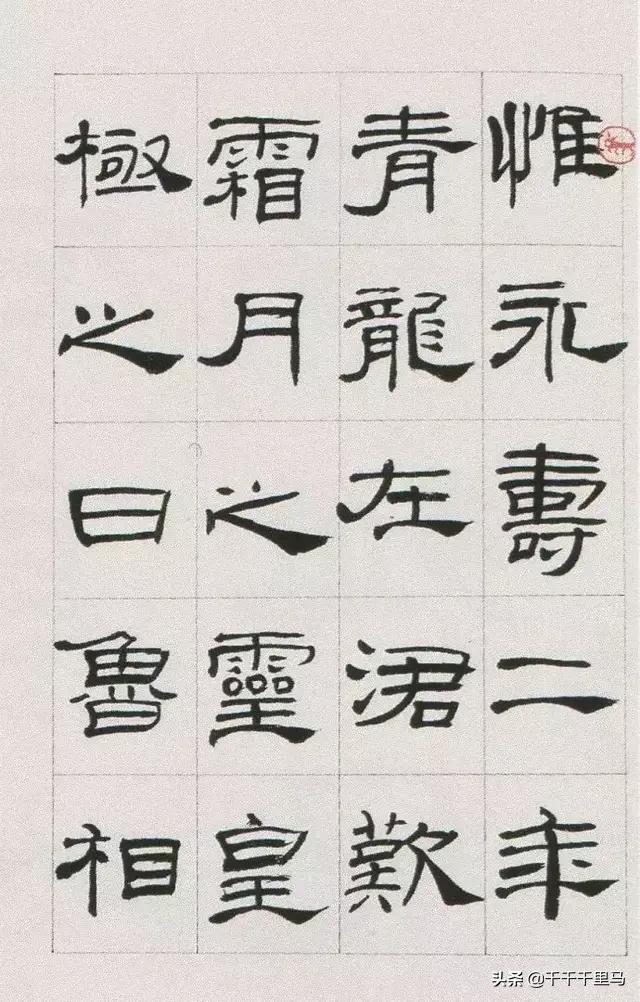 惟永壽二年
青龍在涒歎
霜月之靈皇
極之日魯相
头条 @千千千里马